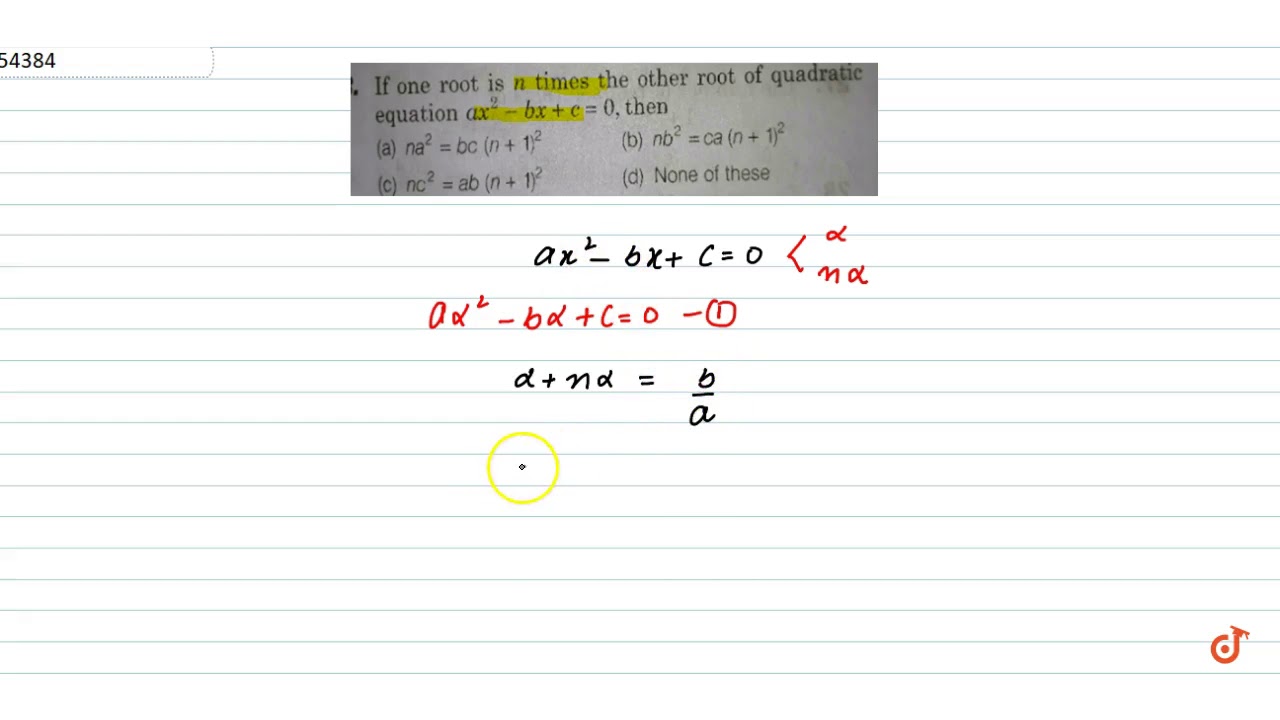 54384
. If one root is n times the other root of quadratic
equation ax² – bx + c = 0, then
(a) na² = bc (n + 1)² (b) nb² = ca (n + 1)²
(c) nc² = ab (n + 1)² (d) None of these
ax² – bx + c = 0 < α
nα
aα² – bα + c = 0 – ①
α + nα = b/a